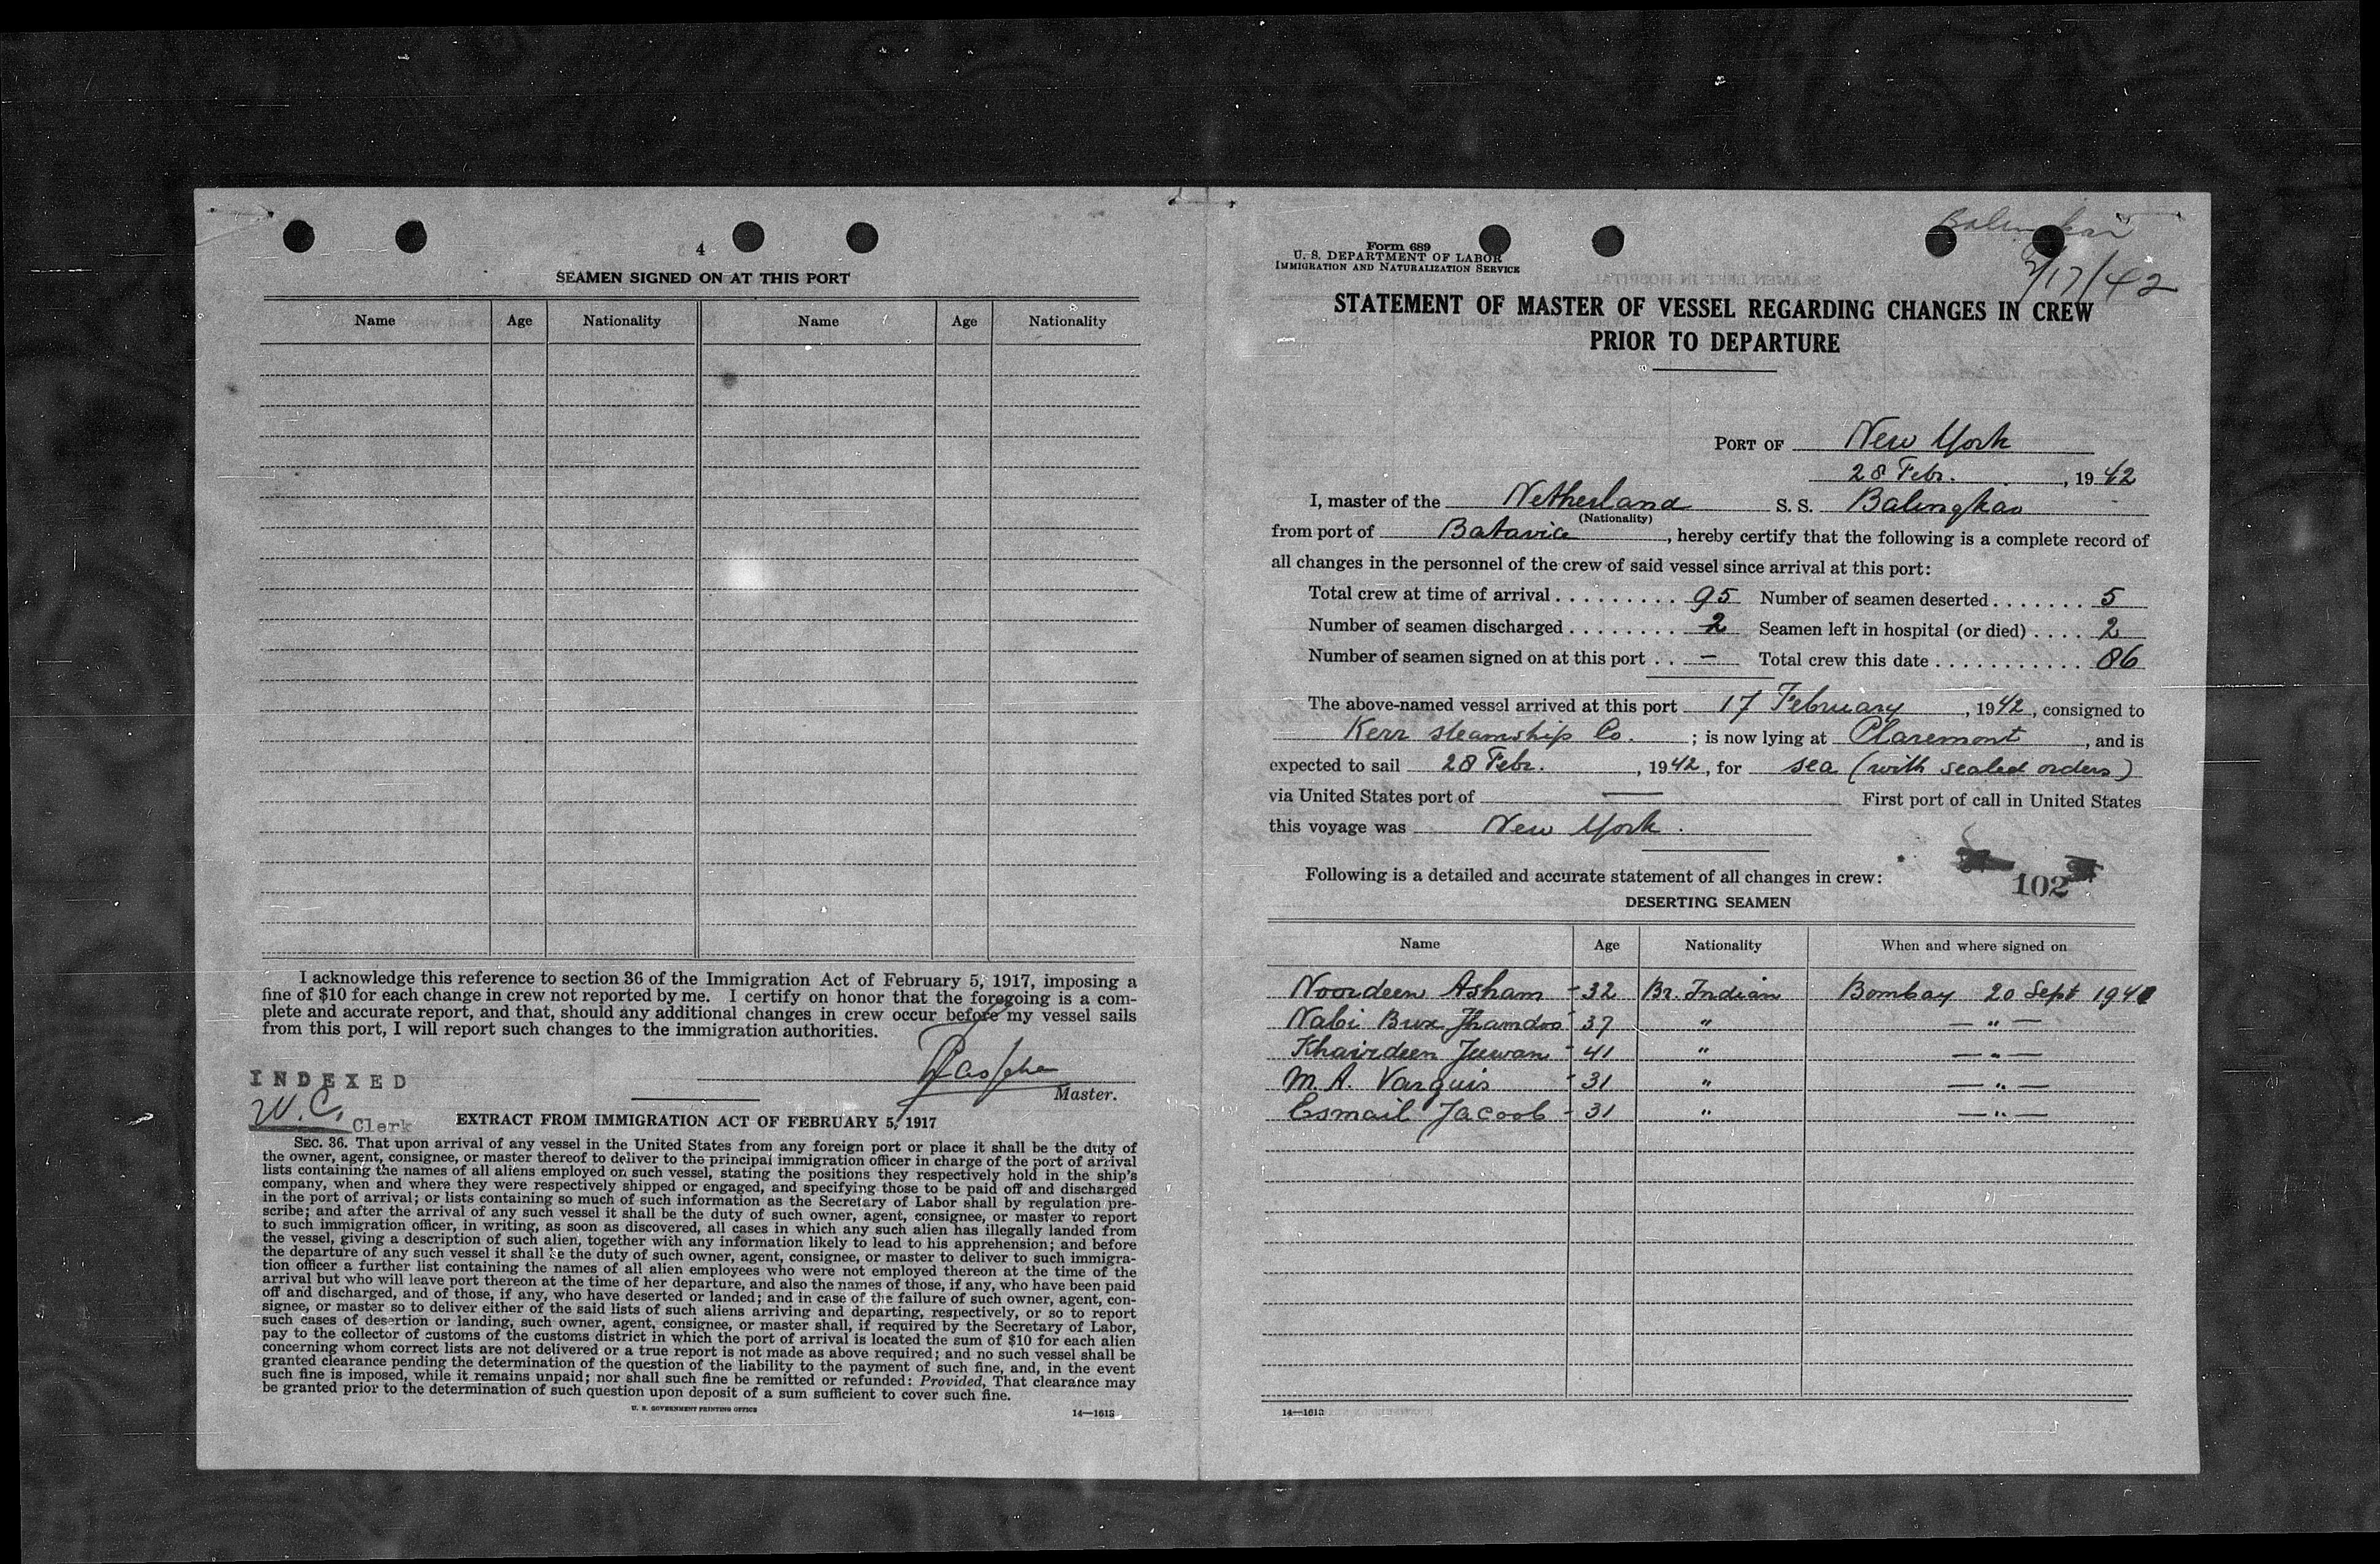 4
SEAMEN SIGNED ON AT THIS PORT
Name Age Nationality Name Age Nationality
I acknowledge this reference to section 36 of the Immigration Act of February 5, 1917, imposing a
fine of $10 for each change in crew not reported by me. I certify on honor that the foregoing is a com-
plete and accurate report, and that, should any additional changes in crew occur before my vessel sails
from this port, I will report such changes to the immigration authorities.
Master.
INDEXED
W.C. Clerk
EXTRACT FROM IMMIGRATION ACT OF FEBRUARY 5, 1917
SEC. 36. That upon arrival of any vessel in the United States from any foreign port or place it shall be the duty of
the owner, agent, consignee, or master thereof to deliver to the principal immigration officer in charge of the port of arrival
lists containing the names of all aliens employed on such vessel, stating the positions they respectively hold in the ship's
company, when and where they were respectively shipped or engaged, and specifying those to be paid off and discharged
in the port of arrival; or lists containing so much of such information as the Secretary of Labor shall by regulation pre-
scribe; and after the arrival of any such vessel it shall be the duty of such owner, agent, consignee, or master to report
to such immigration officer, in writing, as soon as discovered, all cases in which any such alien has illegally landed from
the vessel, giving a description of such alien, together with any information likely to lead to his apprehension; and before
the departure of any such vessel it shall be the duty of such owner, agent, consignee, or master to deliver to such immigra-
tion officer a further list containing the names of all alien employees who were not employed thereon at the time of the
arrival but who will leave port thereon at the time of her departure, and also the names of those, if any, who have been paid
off and discharged, and of those, if any, who have deserted or landed; and in case of the failure of such owner, agent, con-
signee, or master so to deliver either of the said lists of such aliens arriving and departing, respectively, or so to report
such cases of desertion or landing, such owner, agent, consignee, or master shall, if required by the Secretary of Labor,
pay to the collector of customs of the customs district in which the port of arrival is located the sum of $10 for each alien
concerning whom correct lists are not delivered or a true report is not made as above required; and no such vessel shall be
granted clearance pending the determination of the question of the liability to the payment of such fine, and, in the event
such fine is imposed, while it remains unpaid; nor shall such fine be remitted or refunded: Provided, That clearance may
be granted prior to the determination of such question upon deposit of a sum sufficient to cover such fine.
U. S. GOVERNMENT PRINTING OFFICE 14—1613
2/17/42
Form 689
U. S. DEPARTMENT OF LABOR
IMMIGRATION AND NATURALIZATION SERVICE
STATEMENT OF MASTER OF VESSEL REGARDING CHANGES IN CREW
PRIOR TO DEPARTURE
PORT OF New York
28 Febr., 1942
I, master of the Netherland S. S. Balingkar
(Nationality)
from port of Batavia, hereby certify that the following is a complete record of
all changes in the personnel of the crew of said vessel since arrival at this port:
Total crew at time of arrival 95 Number of seamen deserted 5
Number of seamen discharged 2 Seamen left in hospital (or died) 2
Number of seamen signed on at this port — Total crew this date 86
The above-named vessel arrived at this port 17 February, 1942, consigned to
Kerr steamship Co.; is now lying at Claremont, and is
expected to sail 28 Febr., 1942, for sea (with sealed orders)
via United States port of — First port of call in United States
this voyage was New York.
Following is a detailed and accurate statement of all changes in crew:
102
DESERTING SEAMEN
Name Age Nationality When and where signed on
Noordeen Asham - 32 Br. Indian Bombay 20 Sept 1941
Nabi Bux Jhandoo - 37 " — " —
Khairdeen Juwan - 41 " — " —
M. A. Varguis - 31 " — " —
Esmail Jacoob - 31 " — " —
14—1613